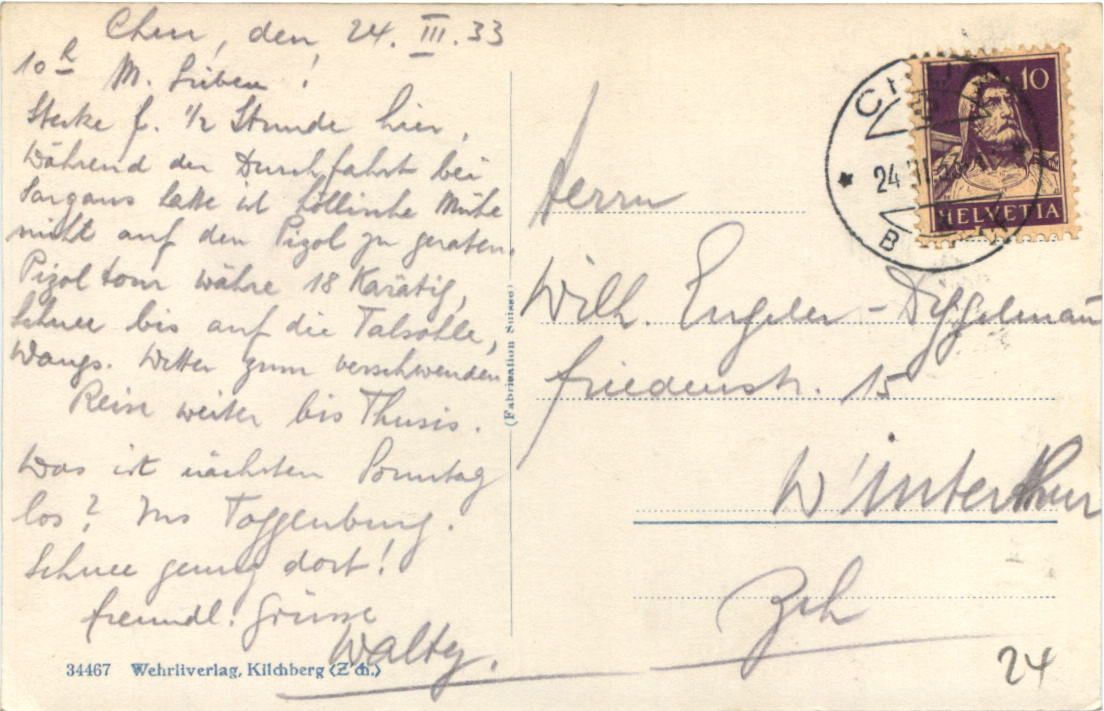 Chur, den 24. III. 33
10 h M. Lieben!
Stecke f. 1/2 Stunde hier,
während der Durchfahrt bei
Sargans hatte ich höllische Mühe
nicht auf den Pizol zu geraten.
Pizoltour währe 18 Karätig,
Schnee bis auf die Talsohle,
Wangs. Wetter zum verschwenden
Reise weiter bis Thusis.
Was ist nächsten Sonntag
los? Ins Toggenburg.
Schnee genug dort!
freundl. Grüsse
Walty.
34467 Wehrliverlag, Kilchberg (Zch.)
(Fabrication Suisse)
10
HELVETIA
24 III 33
Herrn
Wilh. Engeler-Diggelmann
Friedenstr. 15
W'interthur
Zch
24